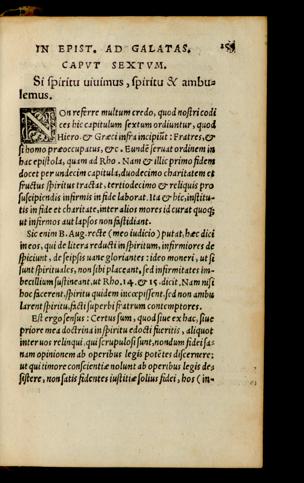 IN EPIST. AD GALATAS. 159
CAPVT SEXTVM.
Si spiritu uiuimus, spiritu & ambu-
lemus.
NOn referre multum credo, quod nostri codi
ces hic capitulum sextum ordiuntur, quod
Hiero. & Græci infra incipiũt: Fratres, &
si homo præoccupatus, &c. Eundẽ seruat ordinem in
hac epistola, quam ad Rho. Nam & illic primo fidem
docet per undecim capitula, duodecimo charitatem et
fructus spiritus tractat, tertiodecimo & reliquis pro
suscipiendis infirmis in fide laborat. Ita & hic, institu-
tis in fide et charitate, inter alios mores id curat quoq;
ut infirmos aut lapsos non fastidiant.
Sic enim B. Aug. recte (meo iudicio) putat, hæc dici
in eos, qui de litera reducti in spiritum, infirmiores de
spiciunt, de seipsis uane gloriantes: ideo moneri, ut si
sunt spirituales, non sibi placeant, sed infirmitates im-
becillium sustineant, ut Rho. 14. & 15. dicit. Nam nisi
hoc facerent, spiritu quidem incœpissent, sed non ambu
larent spiritu, facti superbi fratrum contemptores.
Est ergo sensus: Certus sum, quod siue ex hac, siue
priore mea doctrina in spiritu edocti fueritis, aliquot
inter uos relinqui, qui scrupulosi sunt, nondum fidei sa-
nam opinionem ab operibus legis potẽtes discernere;
ut qui timore conscientiæ nolunt ab operibus legis de-
sistere, non satis fidentes iustitiæ solius fidei, hos (in-